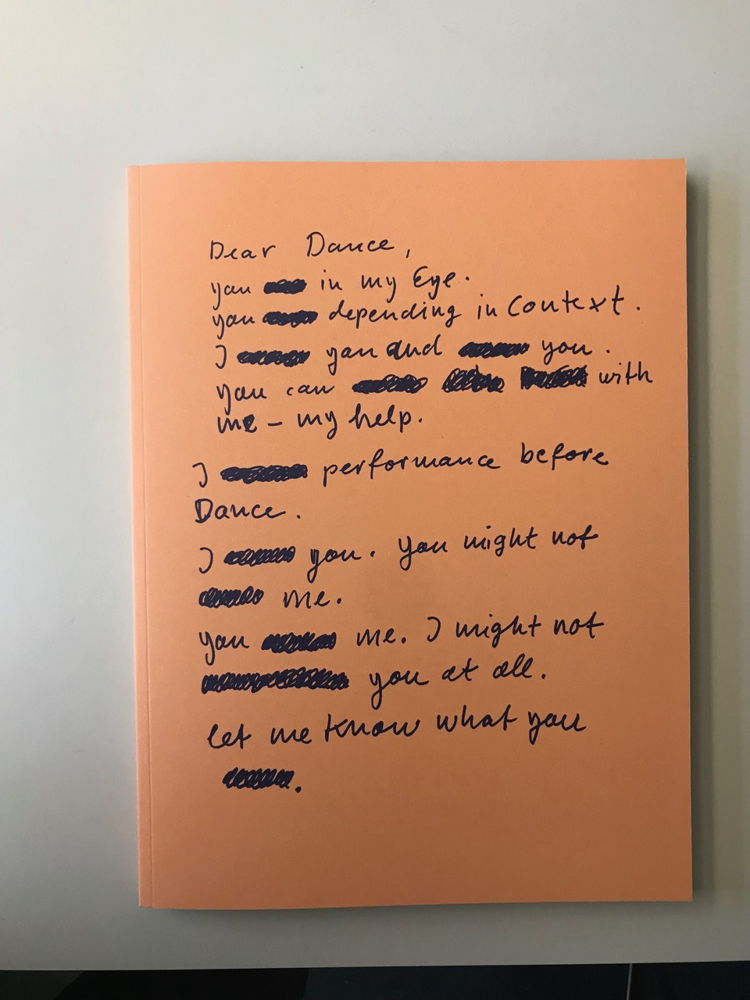 Dear Dance,
you in my Eye.
you depending in Context.
I you and you.
you can with
me – my help.
I performance before
Dance.
I you. you might not
me.
you me. I might not
you at all.
let me know what you
.